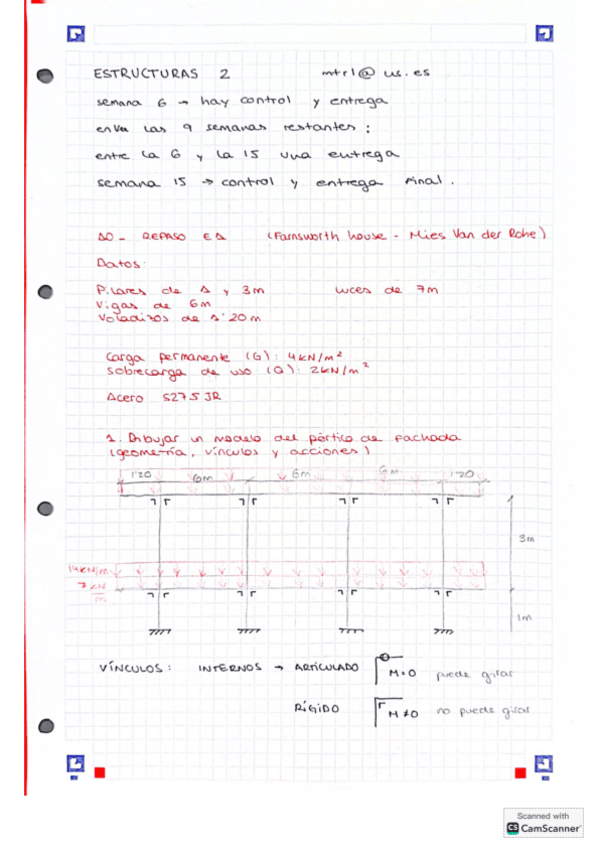 ESTRUCTURAS 2 mtrl@us.es
semana 6 → hay control y entrega
en las 9 semanas restantes:
entre la 6 y la 15 una entrega
semana 15 → control y entrega final.
REPASO E1 (Farnsworth house - Mies Van der Rohe)
Datos:
Pilares de 1 y 3m luces de 7m
Vigas de 6m
Voladizos de 1'20m
Carga permanente (G): 4KN/m²
Sobrecarga de uso (Q): 2KN/m²
Acero S275 JR
1. Dibujar un modelo del pórtico de fachada
(geometría, vínculos y acciones)
1'20 6m 6m 6m 1'20
3m
14KN/m
7 KN/m
1m
VÍNCULOS: INTERNOS → ARTICULADO M=0 puede girar
RÍGIDO M≠0 no puede girar
Scanned with
CS CamScanner